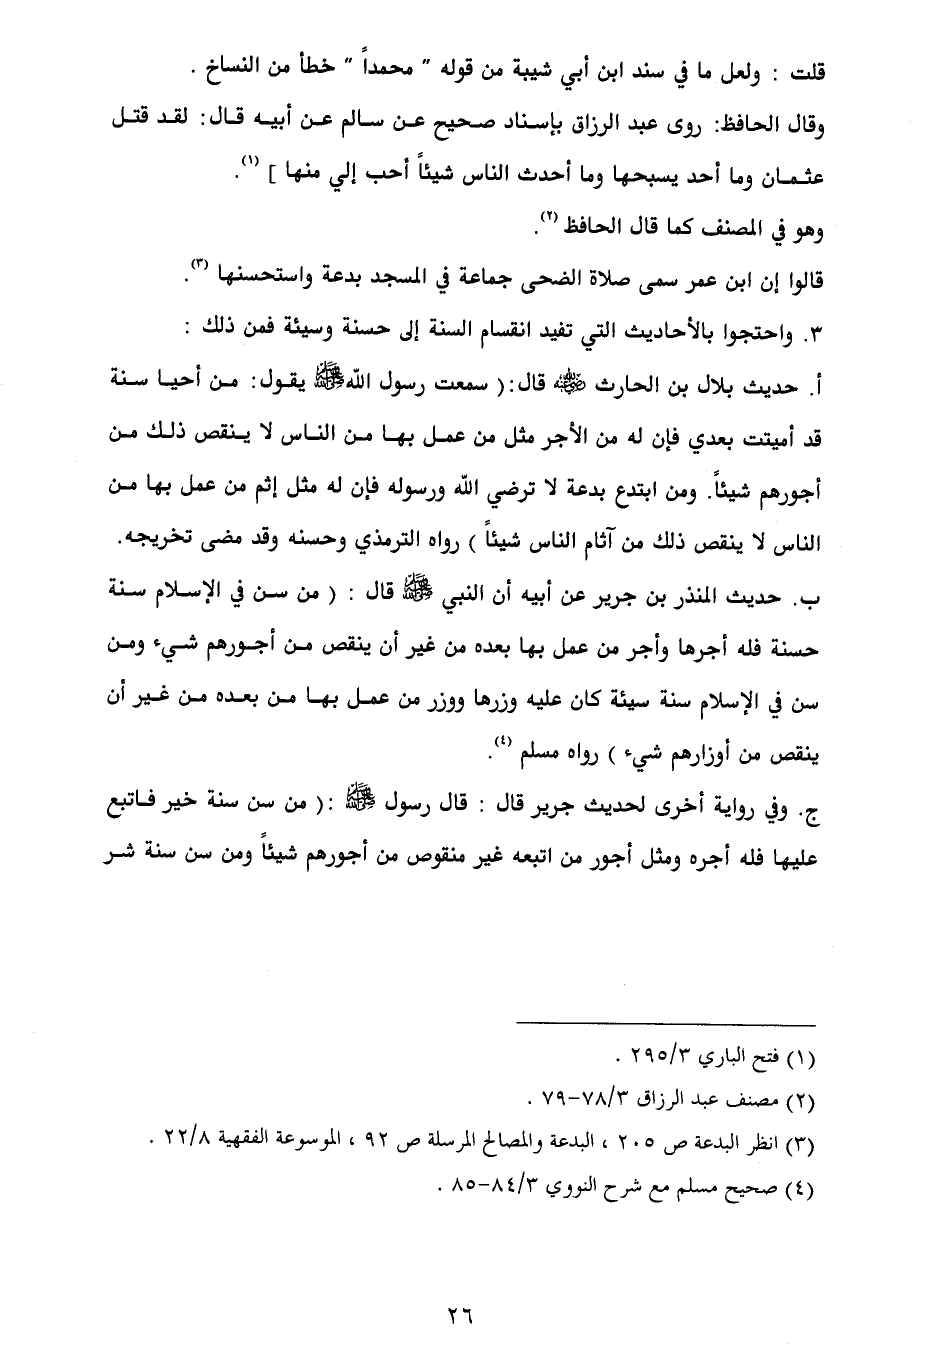 قلت : ولعل ما في سند ابن أبي شيبة من قوله " محمداً " خطأ من النساخ .
وقال الحافظ: روى عبد الرزاق بإسناد صحيح عن سالم عن أبيه قال: لقد قتل
عثمان وما أحد يسبحها وما أحدث الناس شيئاً أحب إلي منها ] (١).
وهو في المصنف كما قال الحافظ (٢).
قالوا إن ابن عمر سمى صلاة الضحى جماعة في المسجد بدعة واستحسنها (٣).
٣. واحتجوا بالأحاديث التي تفيد انقسام السنة إلى حسنة وسيئة فمن ذلك :
أ. حديث بلال بن الحارث رضي الله عنه قال:( سمعت رسول الله ﷺ يقول: من أحيا سنة
قد أميتت بعدي فإن له من الأجر مثل من عمل بها من الناس لا ينقص ذلك من
أجورهم شيئاً. ومن ابتدع بدعة لا ترضي الله ورسوله فإن له مثل إثم من عمل بها من
الناس لا ينقص ذلك من آثام الناس شيئاً ) رواه الترمذي وحسنه وقد مضى تخريجه.
ب. حديث المنذر بن جرير عن أبيه أن النبي ﷺ قال : ( من سن في الإسلام سنة
حسنة فله أجرها وأجر من عمل بها بعده من غير أن ينقص من أجورهم شيء ومن
سن في الإسلام سنة سيئة كان عليه وزرها ووزر من عمل بها من بعده من غير أن
ينقص من أوزارهم شيء ) رواه مسلم (٤).
ج. وفي رواية أخرى لحديث جرير قال : قال رسول ﷺ :( من سن سنة خير فاتبع
عليها فله أجره ومثل أجور من اتبعه غير منقوص من أجورهم شيئاً ومن سن سنة شر
(١) فتح الباري ٢٩٥/٣ .
(٢) مصنف عبد الرزاق ٧٨/٣-٧٩ .
(٣) انظر البدعة ص ٢٠٥ ، البدعة والمصالح المرسلة ص ٩٢ ، الموسوعة الفقهية ٢٢/٨ .
(٤) صحيح مسلم مع شرح النووي ٨٤/٣-٨٥ .
٢٦